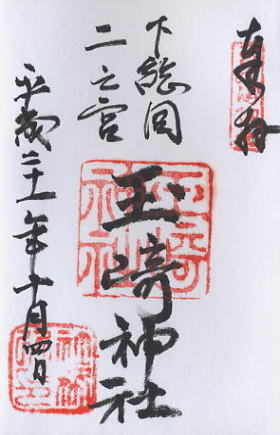 奉拝
下総国
二之宮
玉崎神社
平成二十一年十月四日
玉崎神社